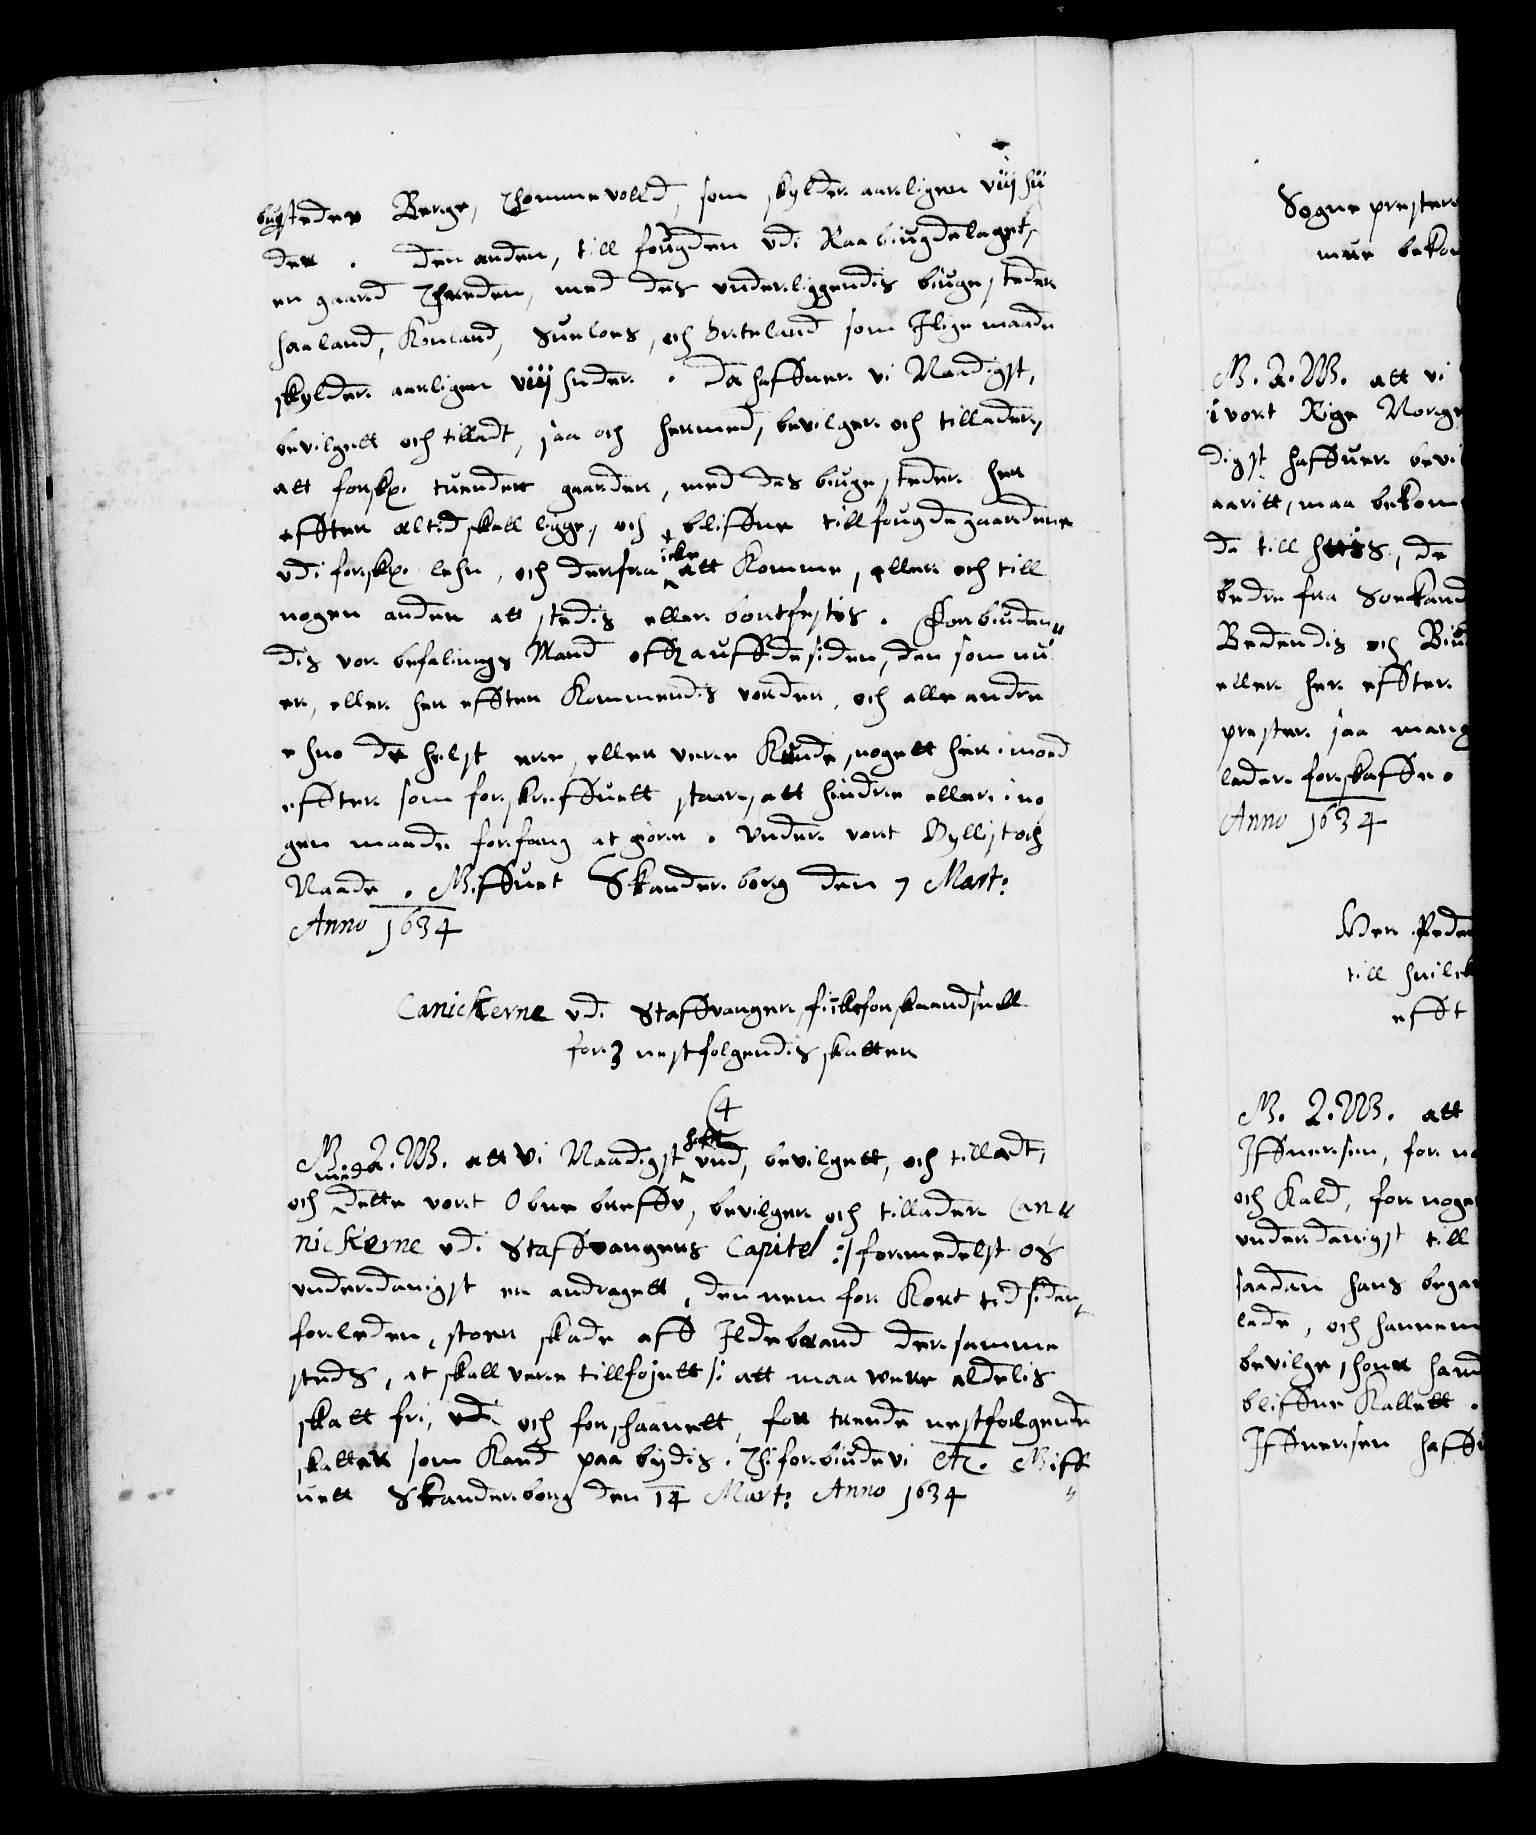 bugsteder Berge, Thommevolld, som skylder aarligen viij hu
der . den anden, till fougden udi Raabiugdelaget,
en gaard Threden, med des underliggendis biugesteder
haaland, Kouland, Sueloes, och Briteland som Ilige maade
skylder aarligen viij huder . da haffuer vi Naadigst,
bevilgett och tilladt, saa och hermed, bevilger och tillader,
att forskr: tuender gaarder, med des biugesteder her
effter altid skall ligge, och bliffue till fougdegaardene
udi forskr: lehn, och derfra icke att Komme, eller och till
nogen anden att stedis eller bortfestis . Forbiuden-
dis vor befalings Mand off Aggdesiden, den som nu
er, eller her effter Kommendis vorder, och alle andre
ehuo de helst ere, eller vere Kunde, nogett her imod
effter som forskreffuett staar, att hindre eller i no
gen maade forfang at giøre . Under vort Hyllist och
Naade . Giffuet Skanderborg den 7 Marti
Anno 1634
Canickerne udi Staffvanger fick forskaandsell
for 3 nestfolgendis skatter
(4
G. A. W. att Vi Naadigst haffr und, bevilgett, och tilladt,
och med dette vort Obne breff, bevilger och tillader Can-
nickerne udi Staffvangers Capitel :/ formedelst os
underdanigst er andragett, dennem for Kort tid siden,
forleden, stoer skade aff Ildebrand der samme
steds, at skall vere tillføjett /: att maa were aldelis
skatt fri, och forschaanett, for trende nestfolgende
skatter som Kand paabydis. Thi forbiude vi Etc. Giff
uett Skanderborg den 14 Marti Anno 1634
Sogneprester
mue beko
G. A. W. att vi
i vort Rige Norge
digst haffuer bevi
aaritt, maa bekom
de till huus, de
bedre fra
Bedendis och Biu
eller her effter
prester saa mang
lader forskaffe .
Anno 1634
Her Peder
till huilck
efft
G. A. W. att
Iffuersen, for no
och Kald, for noge
underdanigst till
saadan hans begæ
lade, och hannem
bevilge, hour hand
bliffue Kallett .
Iffuersen haffu